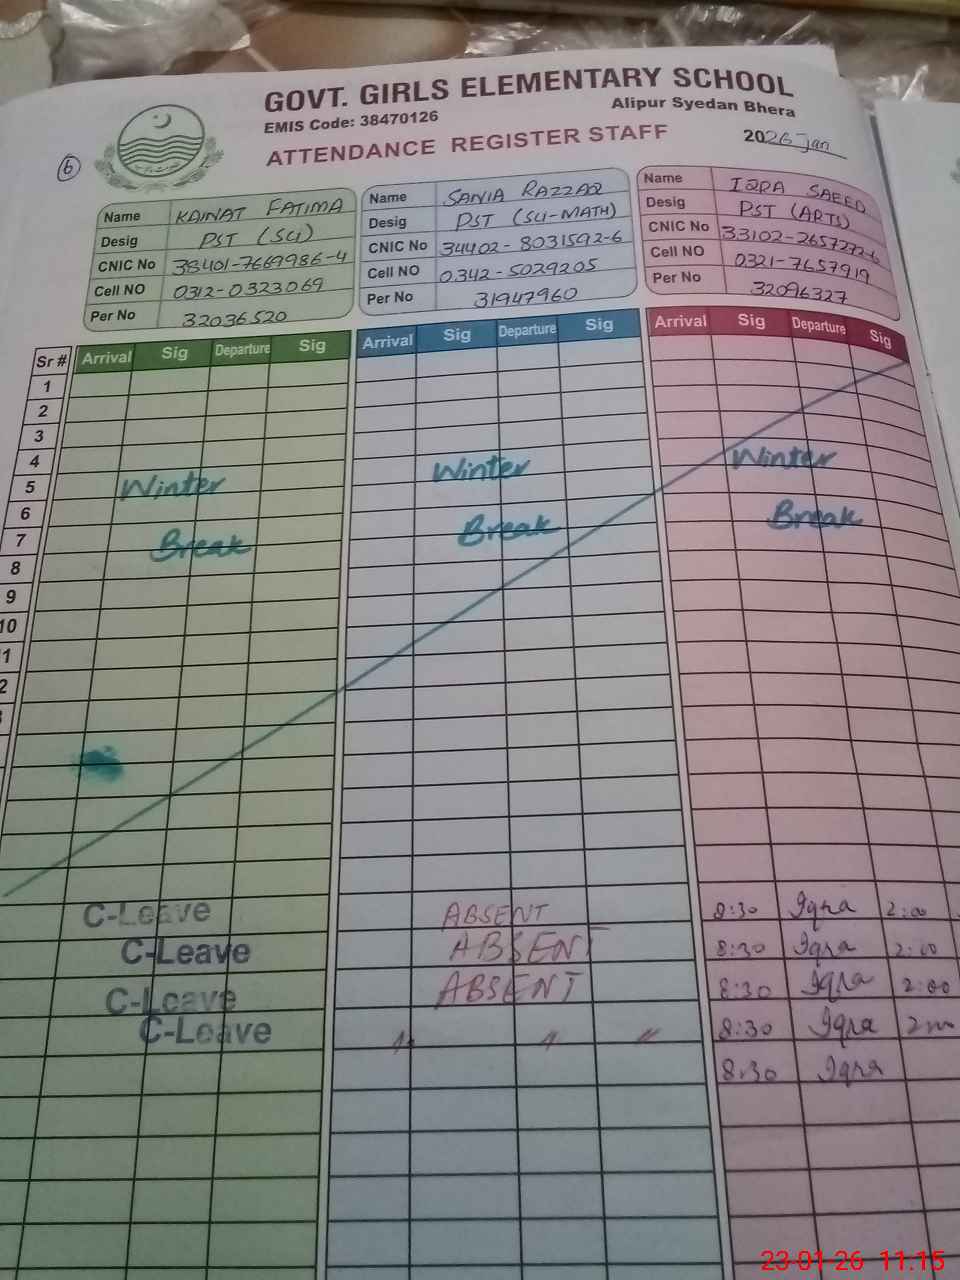 GOVT. GIRLS ELEMENTARY SCHOOL
EMIS Code: 38470126
Alipur Syedan Bhera
ATTENDANCE REGISTER STAFF
2026 Jan
6
Name KAINAT FATIMA
Desig PST (SCI)
CNIC No 38401-7669986-4
Cell NO 0312-0323069
Per No 32036520
Name SANIA RAZZAQ
Desig PST (SCI-MATH)
CNIC No 34402-8031592-6
Cell NO 0342-5029205
Per No 31947960
Name IQRA SAEED
Desig PST (ARTS)
CNIC No 33102-2657272-6
Cell NO 0321-7657919
Per No 32096327
Sr # Arrival Sig Departure Sig Arrival Sig Departure Sig Arrival Sig Departure Sig
1
2
3
4
5
6
7
8
9
10
Winter Winter Winter
Break Break Break
C-Leave ABSENT 8:30 Iqra 2:00
C-Leave ABSENT 8:30 Iqra 2:00
C-Leave ABSENT 8:30 Iqra 2:00
C-Leave 〃 〃 〃 8:30 Iqra
8:30 Iqra
23-01-26 11.15